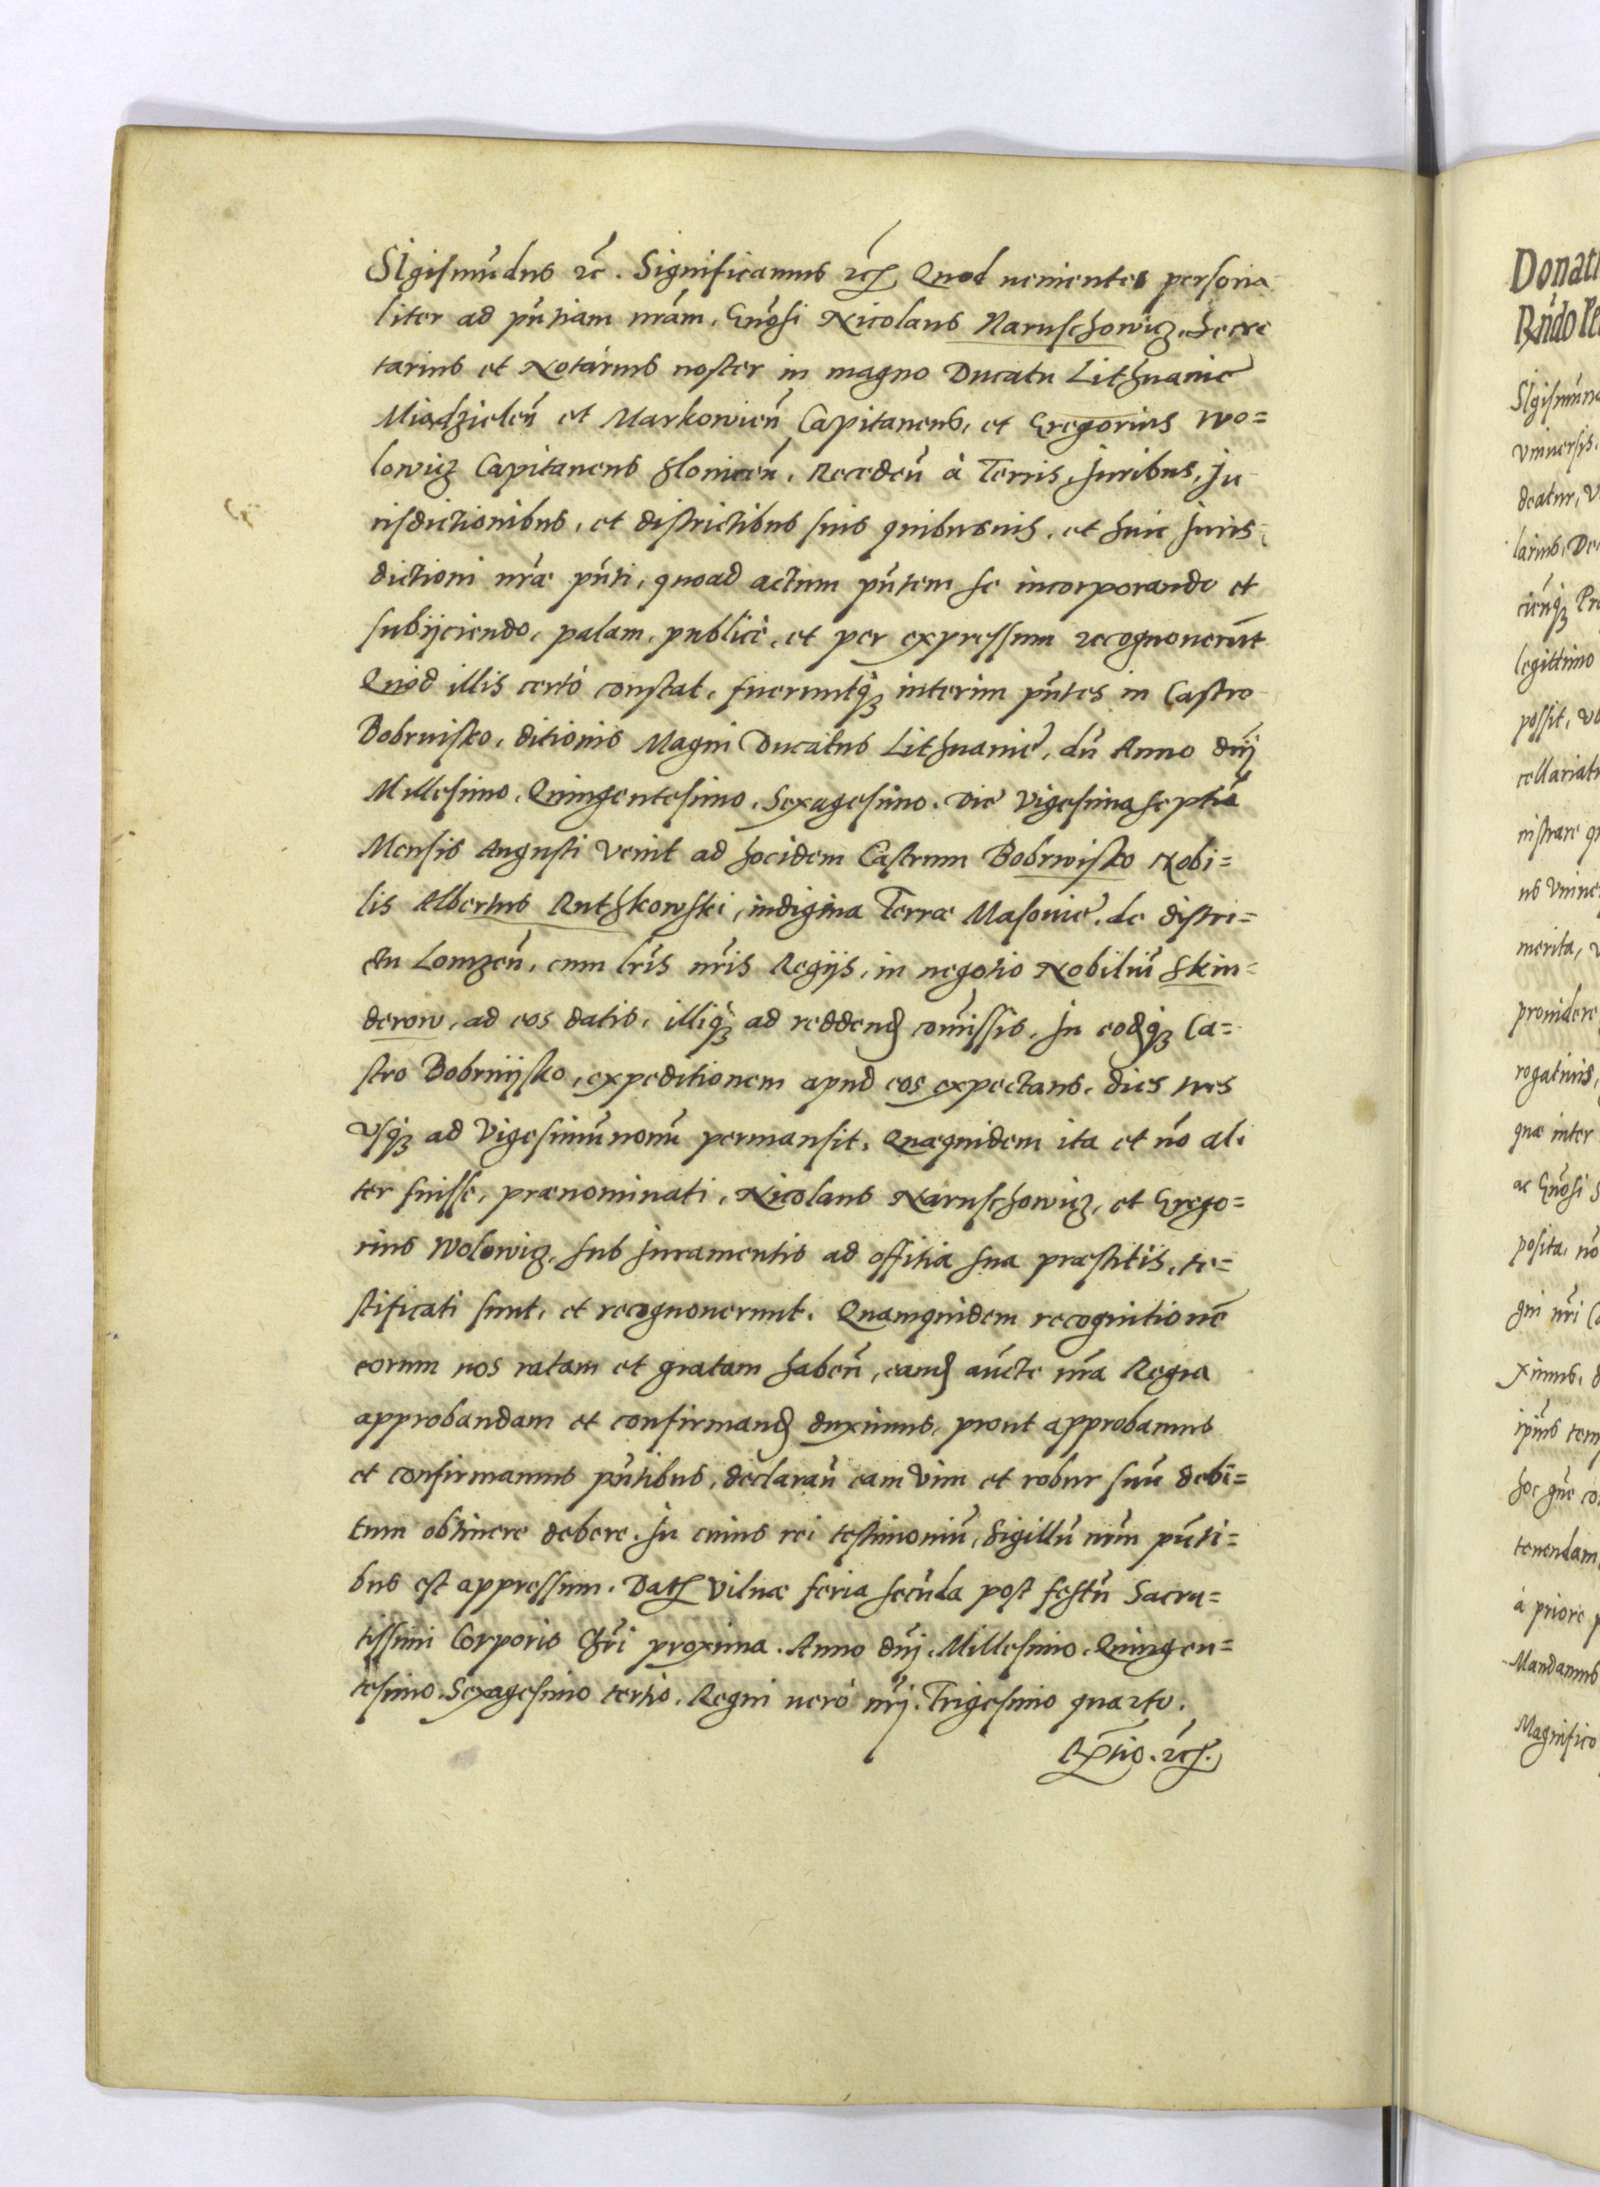 SIgismūdus ꝛc̄. Significamus ꝛcꝭ Quod uenientes persona
liter ad pn̄tiam nr̄am, Gn̄osi Nicolaus Naruschowicz, Secre
tarius et Notarius noster in magno Ducatu Lithuaniæ
Miadzielen̄ et Markowien̄ Capitaneus, et Gregorius Wo=
lowicz Capitaneus Slonicen̄, Receden̄ à Terris, Juribus, Ju
risdictionibus, et districtibus suis quibusuis, et huic Juris=
dictioni nr̄æ pn̄ti, quoad actum pn̄tem se incorporando et
subijciendo, palam, publicè, et per expressum recognouerūt
Quòd illis certò constat, fueruntq́ꝫ interim pn̄tes in Castro
Bobruisko, ditionis Magni Ducatus Lithuaniæ, dū Anno dn̄j
Millesimo, Quingentesimo, Sexagesimo. Die Vigesima septīa
Mensis Augusti venit ad hocidem Castrum Bobrwisko Nobi=
lis Albertus Ruthkowski, indigina Terræ Masouiæ, de distri=
ctu Lomzen̄, cum lr̄is nr̄is Regijs, in negotio Nobiliū Skin=
derow, ad eos datis, illiq́ꝫ ad reddendꝭ com̄issis, In eodꝭq́ꝫ Ca=
stro Bobruijsko, expeditionem apud eos expectans, dies tres
vsq́ꝫ ad Vigesimūnonū permansit, Quæquidem ita et nō ali
ter fuisse, prænominati, Nicolaus Naruschowicz, et Grego=
rius Wolowicz, sub juramentis ad offitia sua præstitis, te=
stificati sunt, et recognouerunt. Quamquidem recognitionē
eorum nos ratam et gratam haben̄, eamdꝭ aūcte nr̄a Regia
approbandam et confirmandꝭ duximus, prout approbamus
et confirmamus pn̄tibus, declaran̄ eam vim et robur suū debi=
tum obtinere debere. In cuius rei testimoniū, Sigillū nr̄m pn̄ti=
bus est appressum. Datꝭ Vilnæ feria secūda post festū Sacra=
tissimi Corporis Chr̄i proxima. Anno dn̄j. Millesimo, Quingen=
tesimo. Sexagesimo tertio. Regni uerò nr̄j. Trigesimo quarto.
Rl̄tio. ꝛcꝭ.
Donati
Rn̄do Pe
SIgismūn
Vniuersis
deatur, V
larius, De
cien̄q́ꝫ Pr
legittimo
possit, vo
cellariatu
nistrare q
merita, v
prouidere
rogatiuis,
quæ inter
ac Gn̄osi S
posita, nō
gni nr̄i Ca
ximus, d
ip̄ius tem
tenendam,
à priore p
Mandamus
Magnifico